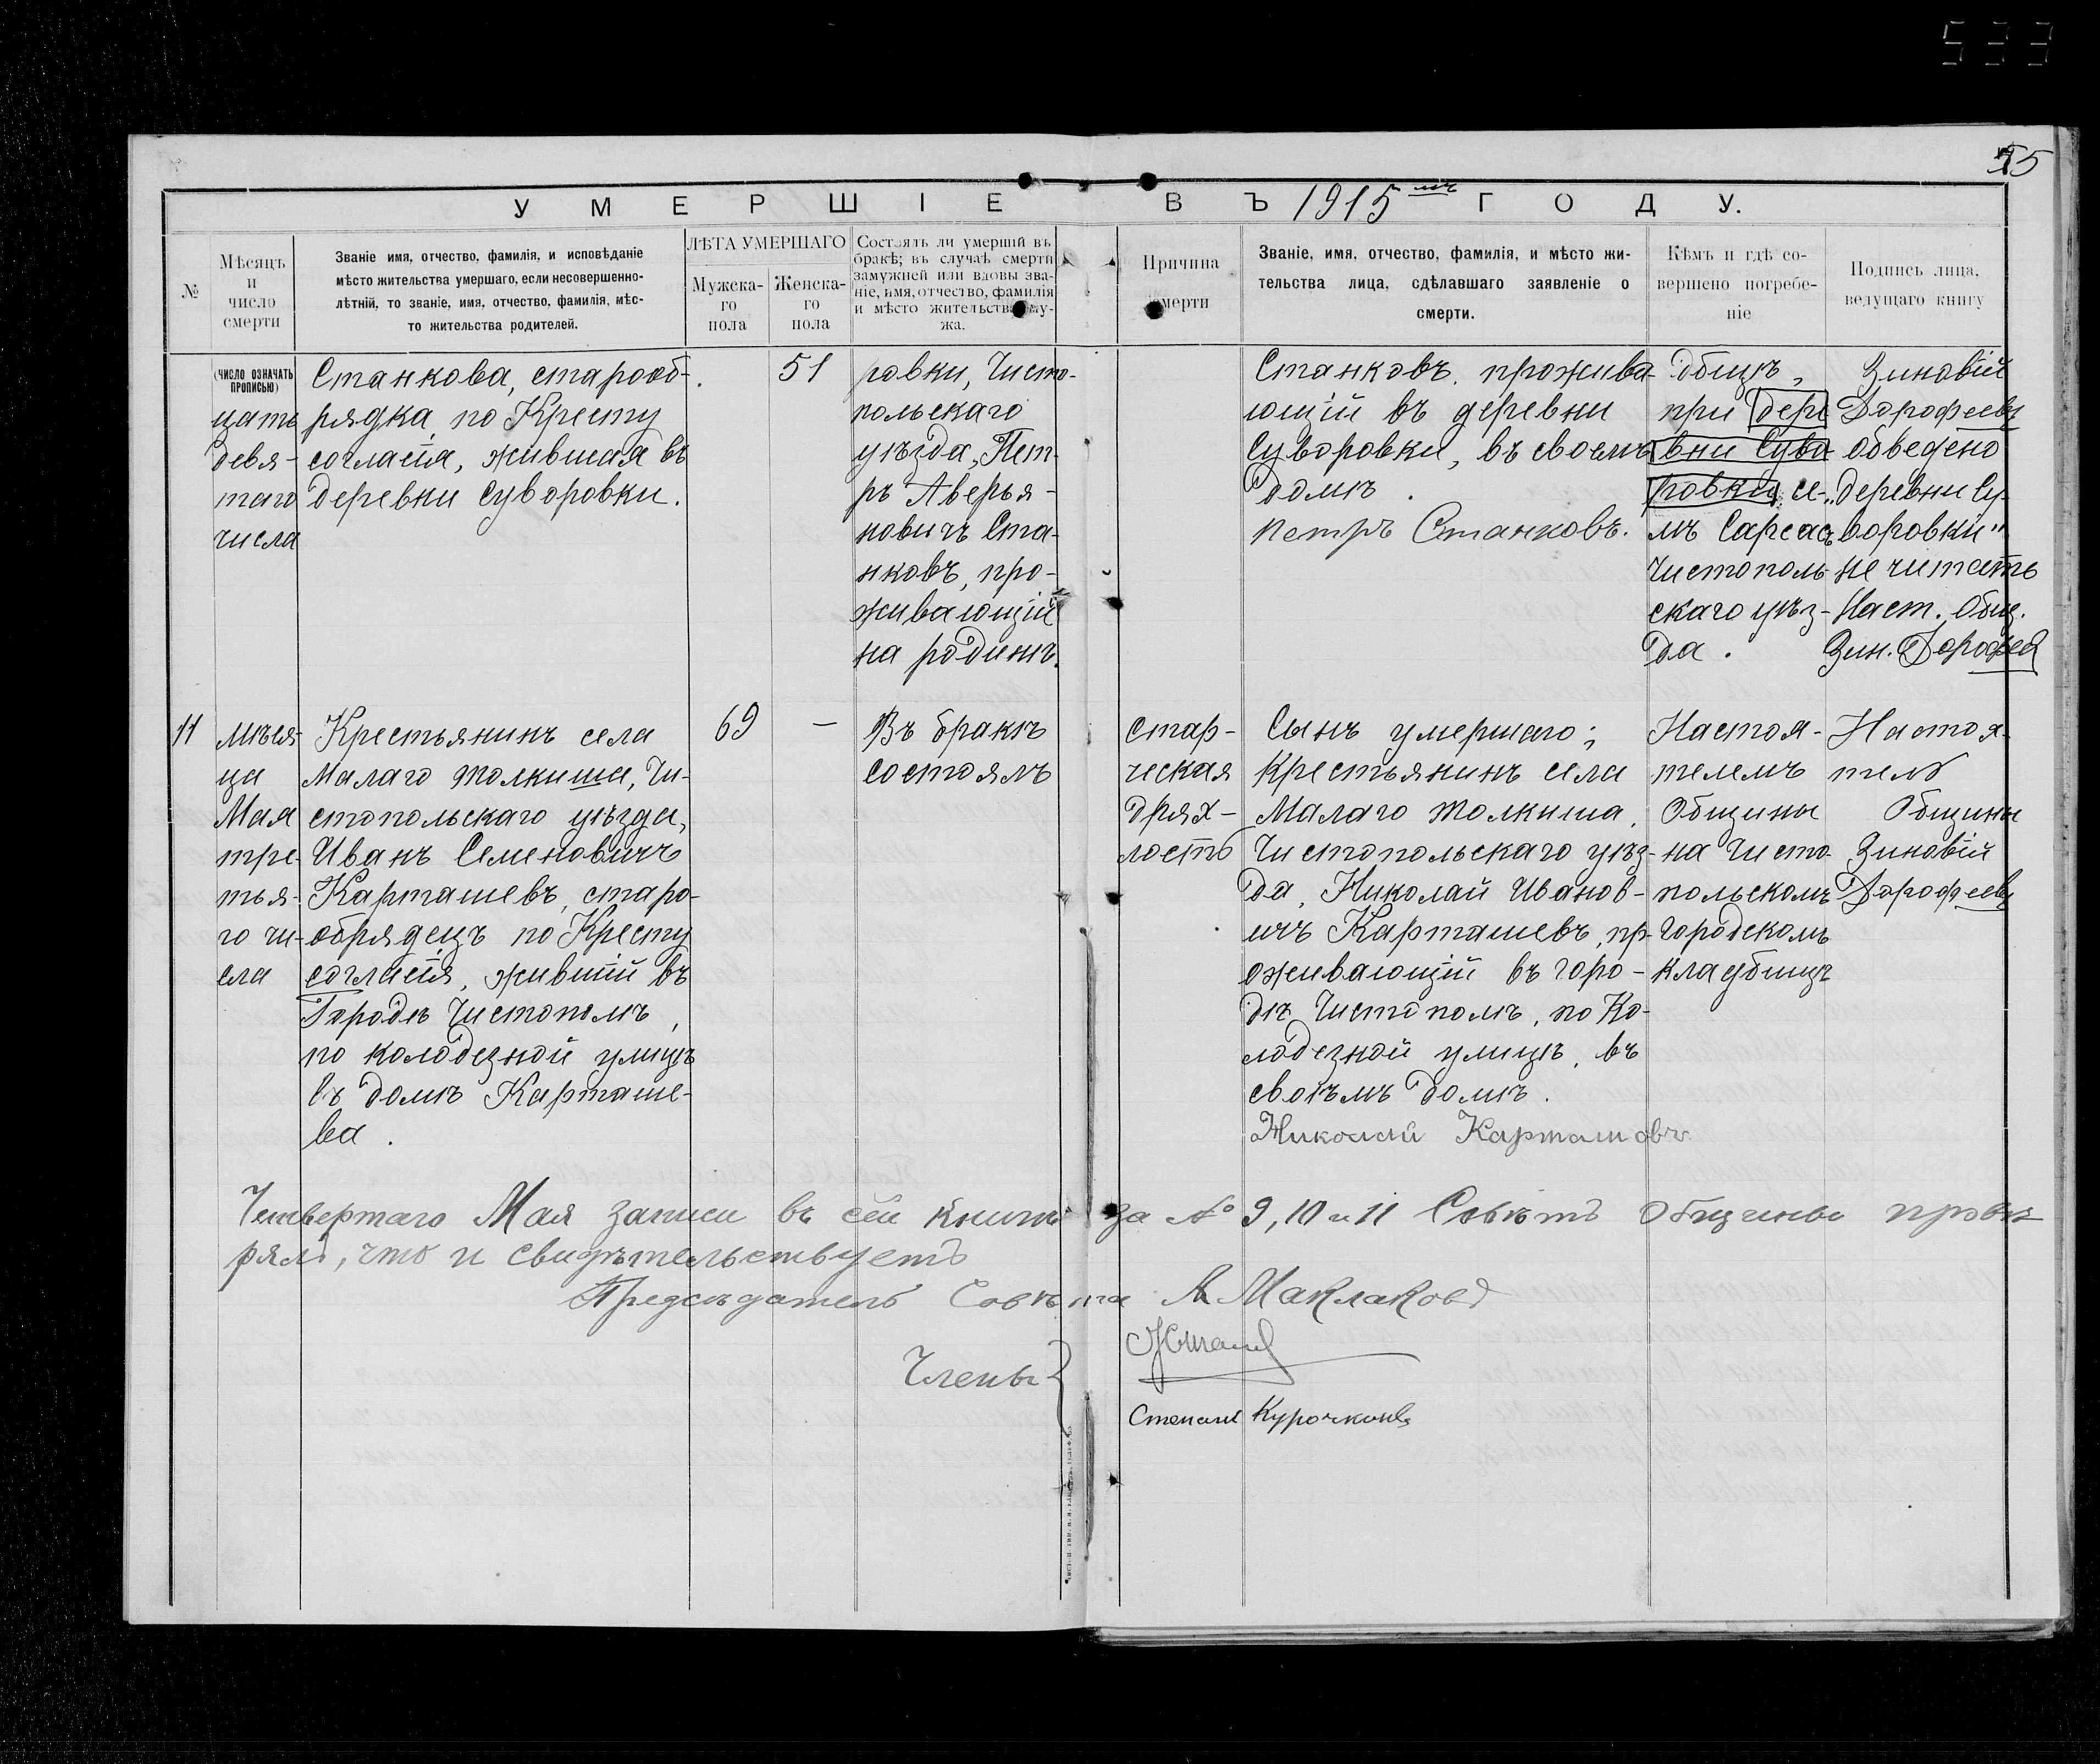 533
55
УМЕРШІЕ ВЪ 1915мъ ГОДУ.
№
Мѣсяцъ
и
число
смерти
Званіе имя, отчество, фамилія, и исповѣданіе
мѣсто жительства умершаго, если несовершенно-
лѣтній, то званіе, имя, отчество, фамилія, мѣс-
то жительства родителей.
ЛѢТА УМЕРШАГО
Мужска-
го
пола
Женска-
го
пола
Состоялъ ли умершій въ
бракѣ; въ случаѣ смерти
замужней или вдовы зва-
ніе, имя, отчество, фамилія
и мѣсто жительства му-
жа.
Причина
смерти
Званіе, имя, отчество, фамилія, и мѣсто жи-
тельства лица, сдѣлавшаго заявленіе о
смерти.
Кѣмъ и гдѣ со-
вершено погребе-
ніе
Подпись лица,
ведущаго книгу
(ЧИСЛО ОЗНАЧАТЬ
ПРОПИСЬЮ)
цать
девя-
таго
числа
Станкова, старооб-
рядка, по Кресту
согласія, жившая въ
деревки Суворовки.
51
ровки, Чисто-
польскаго
уѣзда, Пет-
ръ Аверья-
новичъ Ста-
нковъ, про-
живающій
на родинѣ.
Станковъ, прожива-
ющій въ деревни
Суворовки, въ своемъ
домѣ.
Петръ Станковъ.
бищѣ,
при дере
вни Суво
ровки се-
лѣ Сарсасъ
Чистополь-
скаго уѣз-
да.
Зиновій
Дорофеевъ
Обведено
„деревни Су-
воровки"
не читать
Наст. Общ.
Зин. Дорофеев
11
мѣся-
ца
Мая
тре-
тья-
го чи-
сла
Крестьянинъ села
Малаго Толкиша, Чи-
стопольскаго уѣзда,
Иванъ Семеновичъ
Карташевъ, старо-
обрядецъ по Кресту
согласія, жившій въ
Городѣ Чистополѣ,
по колодезной улицѣ
въ домѣ Карташе-
ва.
69
—
Въ бракѣ
состоялъ
Стар-
ческая
дрях-
лость
Сынъ умершаго;
крестьянинъ села
Малаго Толкиша,
Чистопольскаго уѣз-
да, Николай Иванов-
ичъ Карташевъ, пр-
оживающій въ горо-
дѣ Чистополѣ, по Ко-
лодезной улицѣ, въ
своѣмъ домѣ.
Николай Карташовъ
Настоя-
телемъ
Общины
на Чисто-
польскомъ
Городскомъ
кладбищѣ
Настоя-
тель
Общины
Зиновій
Дорофеевъ
Четвертаго Мая записи въ сей книгѣ за № 9, 10 и 11 Совѣтъ Общины провѣ
рялъ, что и свидѣтельствуетъ
Предсѣдатель Совѣта А Маклаковъ
Члены
Степанъ Курочкинъ